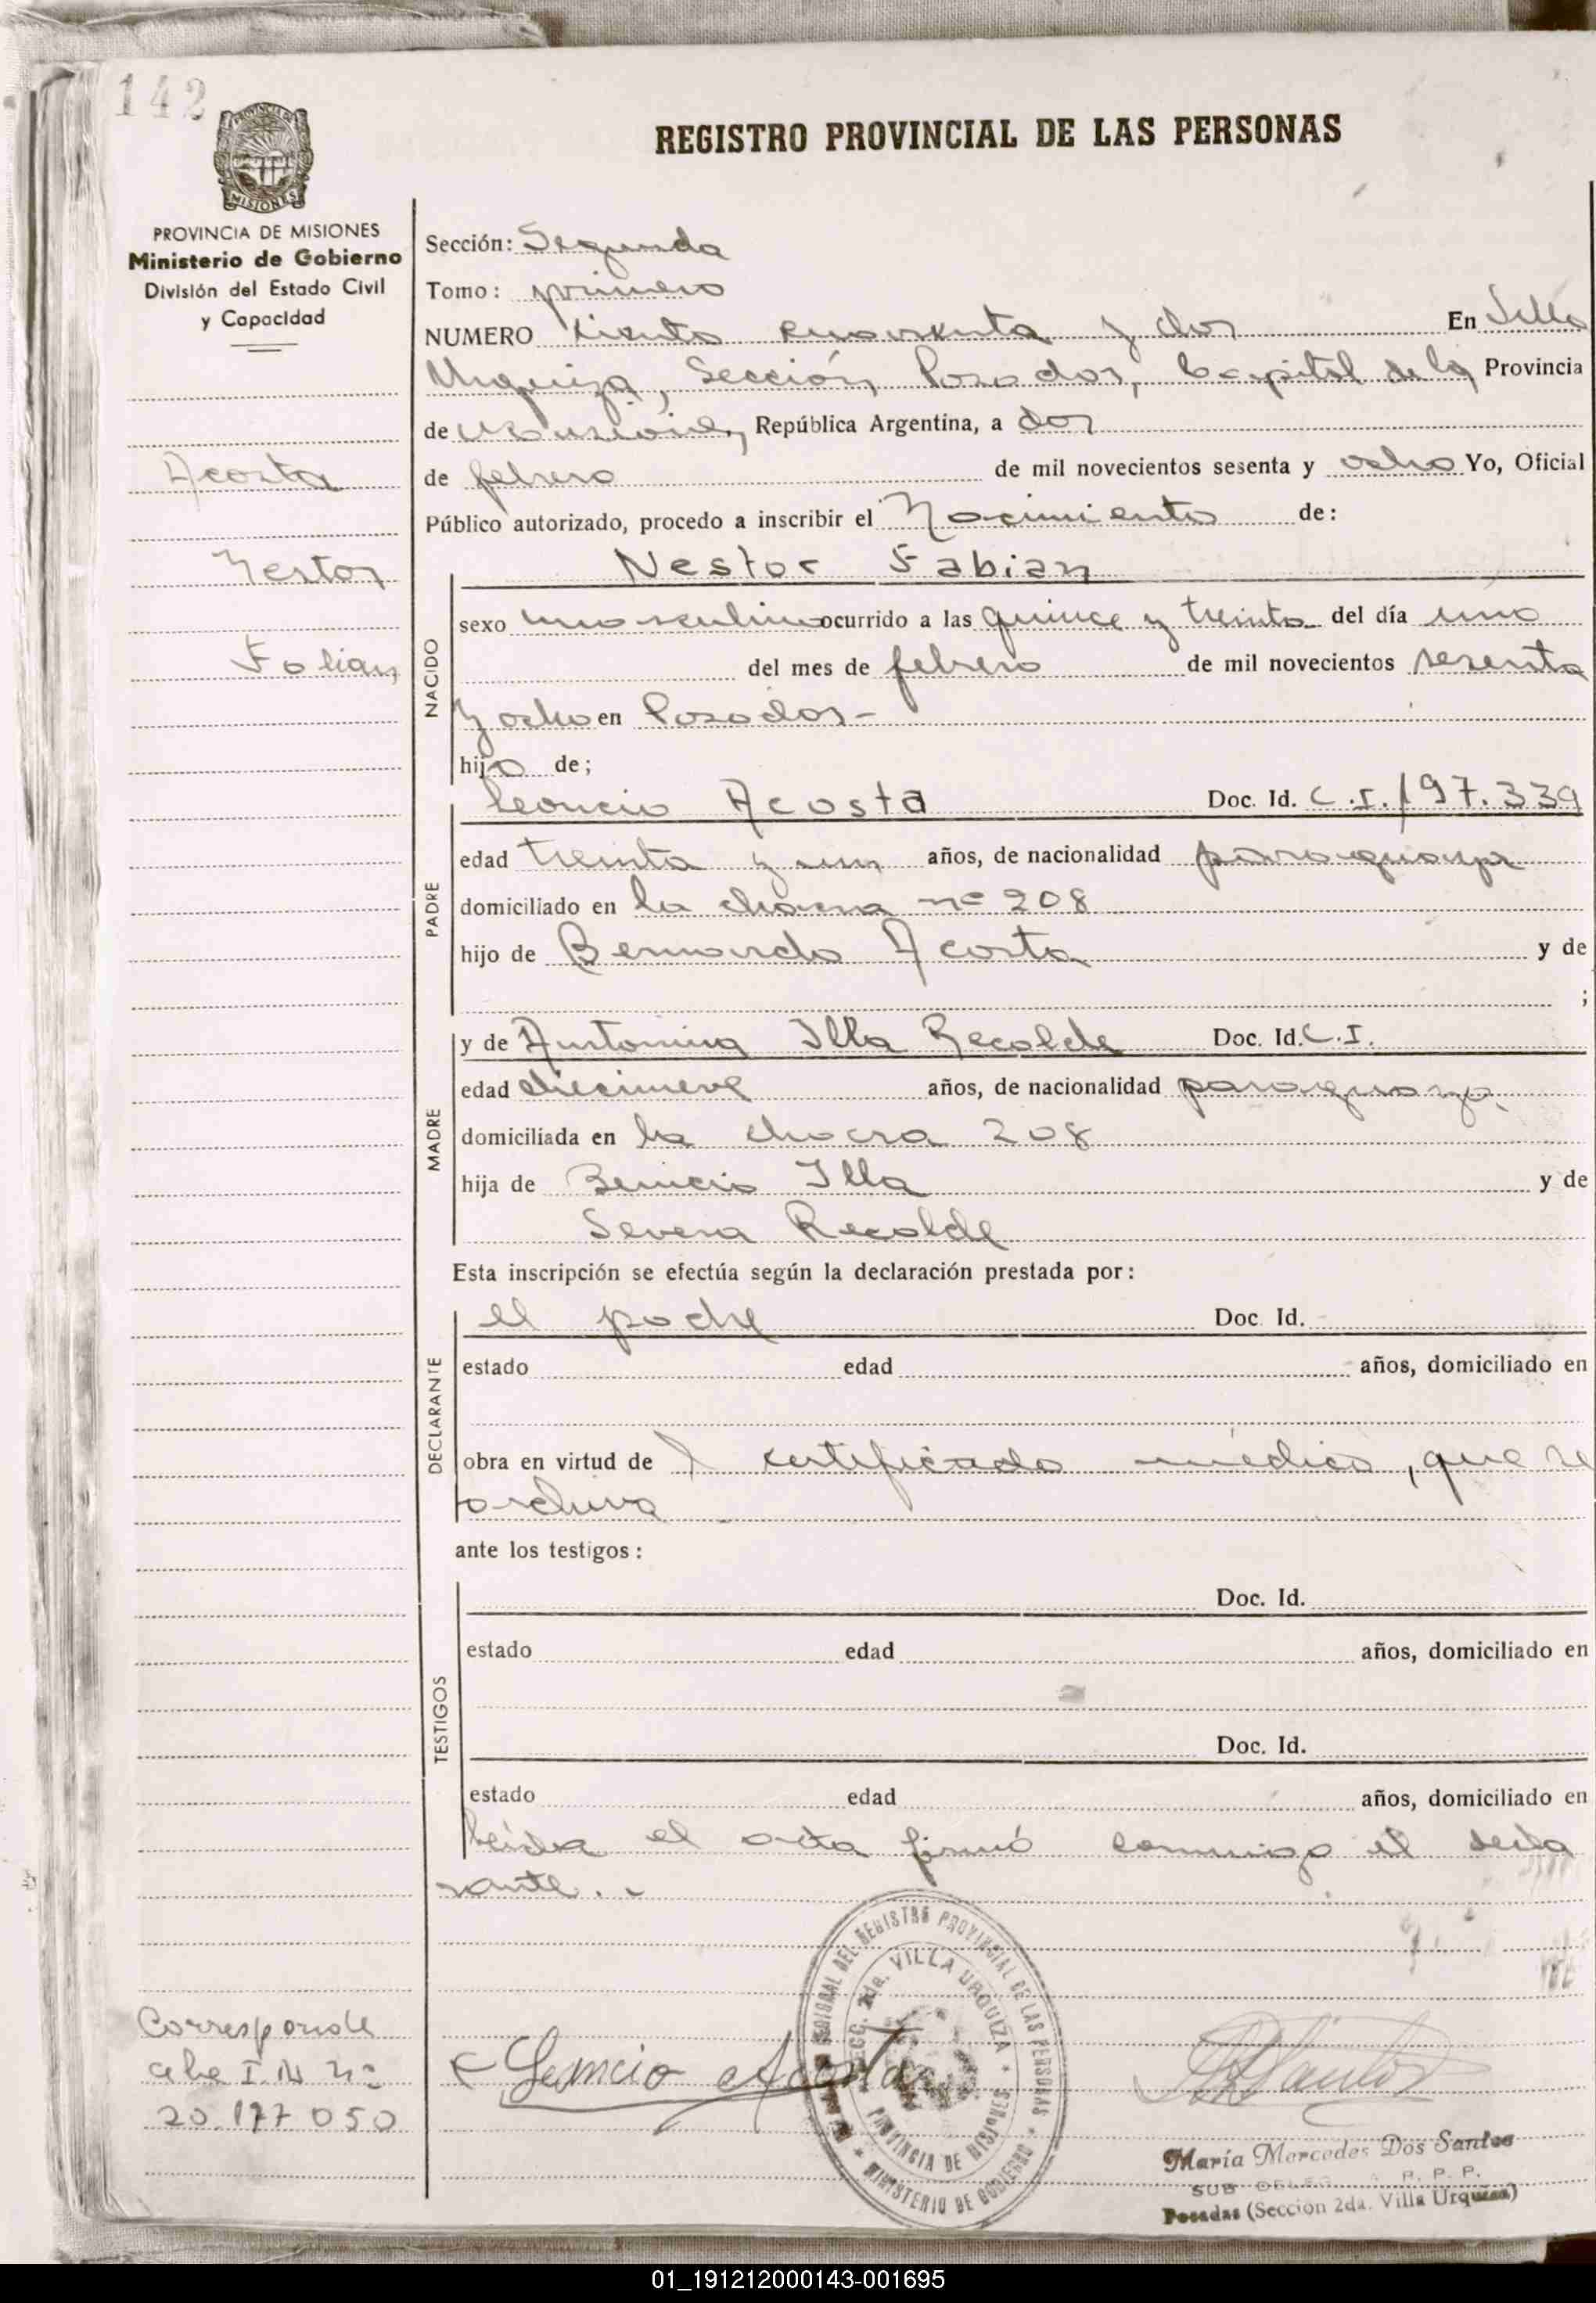 142
PROVINCIA DE
MISIONES
REGISTRO PROVINCIAL DE LAS PERSONAS
PROVINCIA DE MISIONES
Ministerio de Gobierno
División del Estado Civil
y Capacidad
Acosta
Nestor
Fabian
Sección: Segunda
Tomo: primero
NUMERO Ciento cuarenta y dos En Villa
Urquiza, Sección Posadas, Capital de la Provincia
de Misiones, República Argentina, a dos
de febrero de mil novecientos sesenta y ocho Yo, Oficial
Público autorizado, procedo a inscribir el Nacimiento de:
NACIDO
Nestor Fabian
sexo masculino ocurrido a las quince y treinta del día uno
del mes de febrero de mil novecientos sesenta
y ocho en Posadas-
hijo de;
PADRE
Leoncio Acosta Doc. Id. C.I. 197.339
edad treinta y un años, de nacionalidad paraguaya
domiciliado en la chacra nº 208
hijo de Bernardo Acosta y de
;
MADRE
y de Antonina Illa Recalde Doc. Id. C.I.
edad diecinueve años, de nacionalidad paraguaya.
domiciliada en la chacra 208
hija de Benicio Illa y de
Severa Recalde
Esta inscripción se efectúa según la declaración prestada por:
DECLARANTE
el padre Doc. Id.
estado edad años, domiciliado en
obra en virtud de l certificado médico, que se
archiva
ante los testigos:
TESTIGOS
Doc. Id.
estado edad años, domiciliado en
Doc. Id.
estado edad años, domiciliado en
Leída el acta firmó conmigo el decla
rante..
Corresponde
al D.N.I. Nº
20.177.050
Leoncio Acosta
REGIONAL DEL REGISTRO PROVINCIAL DE LAS PERSONAS
SECC. 2da. VILLA URQUIZA
PROVINCIA DE MISIONES
MINISTERIO DE GOBIERNO
María Mercedes Dos Santos
SUB DELEG. R. P. P.
Posadas (Seccion 2da. Villa Urquiza)
01_191212000143-001695